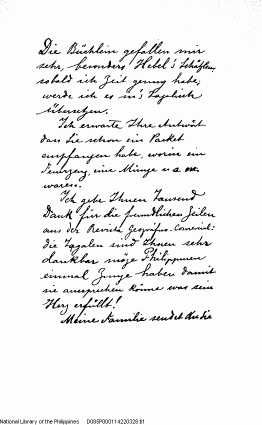 Die Büchlein gefallen mir
sehr, besonders Hebel's Schätzlein,
sobald ich Zeit genug habe,
werde ich es in's Tagalisch
übersetzen.
Ich erwarte Ihre Antwort
dass Sie schon ein Packet
empfangen habe, worin ein
Feuerzeug, eine Münze u a m.
waren.
Ich gebe Ihnen Tausend
Dank für die freundlichen Zeilen
aus der Revista Geográfico-Comercial:
die Tagalen sind Ihnen sehr
dankbar möge Philippinen
einmal Zunge haben damit
sie aussprechen könne was sein
Herz erfüllt!
Meine Familie sendet
National Library of the Philippines D085P000114220328.tif